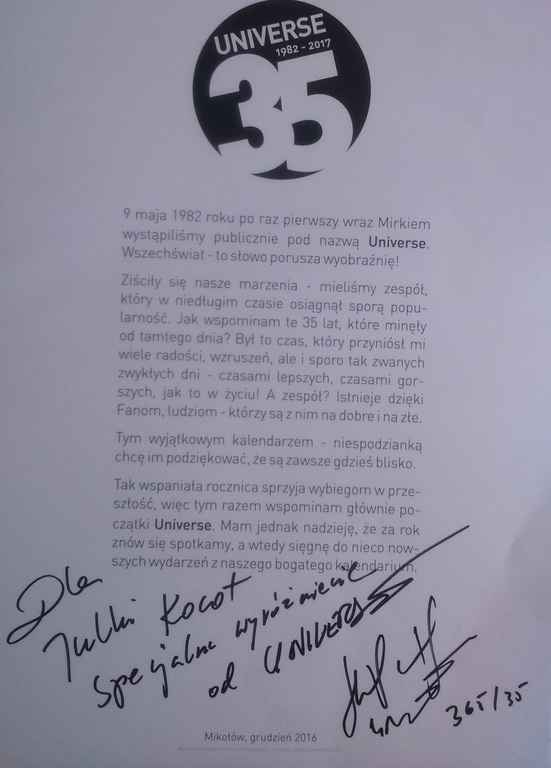 UNIVERSE
1982 - 2017
35
9 maja 1982 roku po raz pierwszy wraz Mirkiem
wystąpiliśmy publicznie pod nazwą Universe.
Wszechświat - to słowo porusza wyobraźnię!
Ziściły się nasze marzenia - mieliśmy zespół,
który w niedługim czasie osiągnął sporą popu-
larność. Jak wspominam te 35 lat, które minęły
od tamtego dnia? Był to czas, który przyniósł mi
wiele radości, wzruszeń, ale i sporo tak zwanych
zwykłych dni - czasami lepszych, czasami gor-
szych, jak to w życiu! A zespół? Istnieje dzięki
Fanom, ludziom - którzy są z nim na dobre i na złe.
Tym wyjątkowym kalendarzem - niespodzianką
chcę im podziękować, że są zawsze gdzieś blisko.
Tak wspaniała rocznica sprzyja wybiegom w prze-
szłość, więc tym razem wspominam głównie po-
czątki Universe. Mam jednak nadzieję, że za rok
znów się spotkamy, a wtedy sięgnę do nieco now-
szych wydarzeń z naszego bogatego kalendarium.
Dla
Julki Kocot
specjalne wyróżnienie
od UNIVERSE
365/35
Mikołów, grudzień 2016